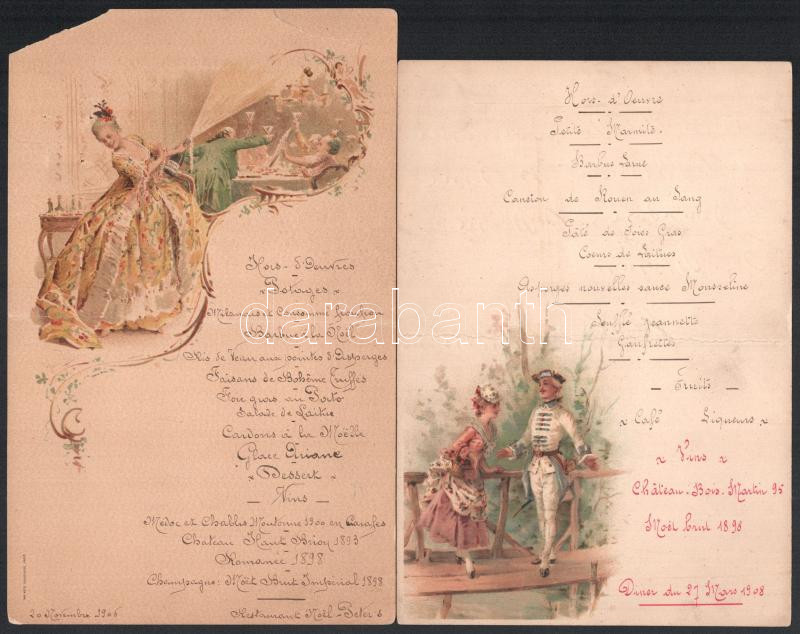 Hors-d'Oeuvres
Potages
Consommé
Barbue à la
Ris de Veau aux pointes d'Asperges
Faisans de Bohême Truffés
Foie gras au Porto
Salade de Laitue
Cardons à la Moëlle
Glace Ariane
Dessert
Vins
Médoc et Chablis Moutonne 1900 en Carafes
Chateau Haut Brion 1893
Romanée 1898
Champagne: Moët Brut Impérial 1898
20 Novembre 1906
Restaurant Noël-Peter's
Hors-d'Oeuvre
Petite Marmite
Barbue
Caneton de Rouen au Sang
Pâté de Foies Gras
Coeurs de Laitues
Asperges nouvelles sauce Mousseline
Soufflé Jeannette
Gaufrettes
Fruits
Café Liqueurs
Vins
Château-Bois-Martin 95
Moët brut 1898
Diner du 27 Mars 1908
darabanth